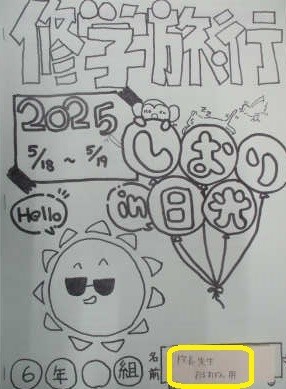 修学旅行
2025
5/18 ~ 5/19
しおり
Hello
in 日光
6年 組
名前
校長先生